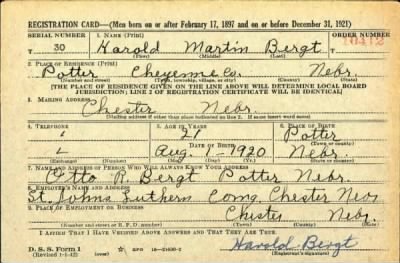 REGISTRATION CARD—(Men born on or after February 17, 1897 and on or before December 31, 1921)
SERIAL NUMBER 1. NAME (Print) ORDER NUMBER
T 30 Harold Martin Bergt
(First) (Middle) (Last)
2. PLACE OF RESIDENCE (Print)
Potter Cheyenne Co. Nebr.
(Number and street) (Town, township, village, or city) (County) (State)
[THE PLACE OF RESIDENCE GIVEN ON THE LINE ABOVE WILL DETERMINE LOCAL BOARD
JURISDICTION; LINE 2 OF REGISTRATION CERTIFICATE WILL BE IDENTICAL]
3. MAILING ADDRESS
Chester Nebr.
[Mailing address if other than place indicated on line 2. If same insert word same]
4. TELEPHONE 5. AGE IN YEARS 6. PLACE OF BIRTH
21 Potter
DATE OF BIRTH (Town or county)
Aug. 1 - 1920 Nebr.
(Exchange) (Number) (Mo.) (Day) (Yr.) (State or country)
7. NAME AND ADDRESS OF PERSON WHO WILL ALWAYS KNOW YOUR ADDRESS
Otto R. Bergt Potter Nebr.
8. EMPLOYER'S NAME AND ADDRESS
St. Johns Luthern Cong. Chester
9. PLACE OF EMPLOYMENT OR BUSINESS
Chester Nebr.
(Number and street or R. F. D. number) (Town) (County) (State)
I AFFIRM THAT I HAVE VERIFIED ABOVE ANSWERS AND THAT THEY ARE TRUE.
D. S. S. Form 1 GPO Harold Bergt
(Revised 1-1-42) (Registrant's signature)